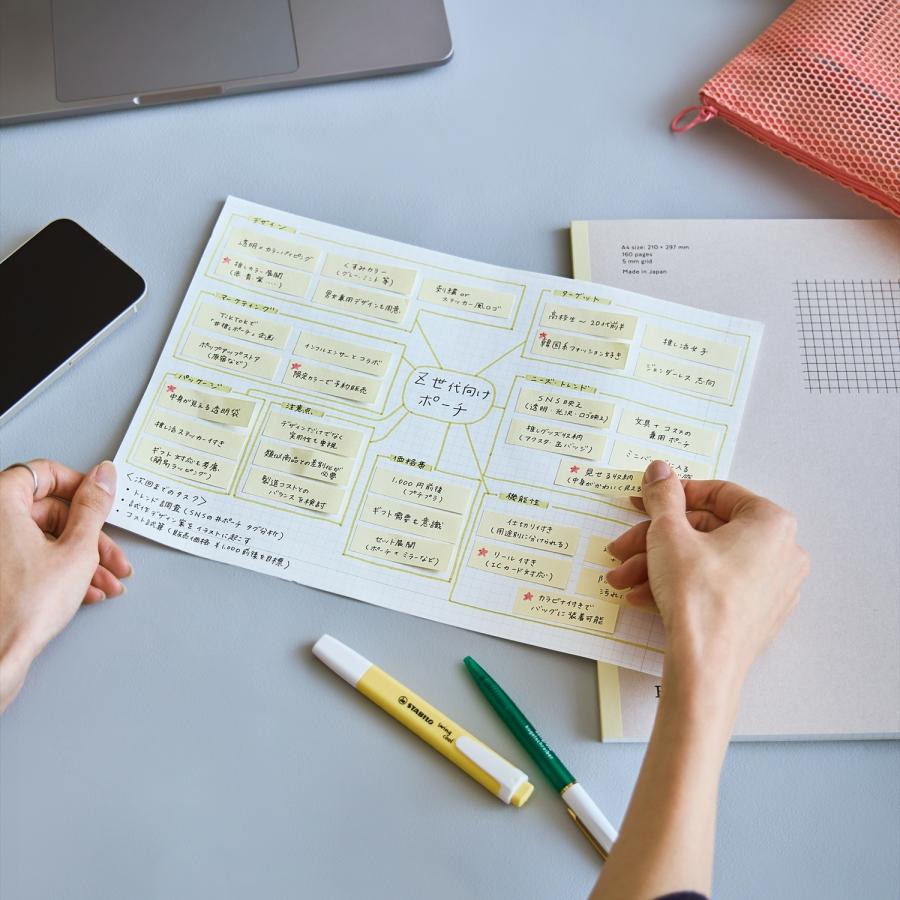 デザイン
透明×カラーパイピング
推しカラー展開
(赤 青 紫 ....)
くすみカラー
(グレー、ミント等)
男女兼用デザインも用意
刺繍 or
ステッカー風ロゴ
マーケティング
TikTokで
"#推しポーチ" 企画
ポップアップストア
(原宿など)
インフルエンサーとコラボ
限定カラーで予約販売
パッケージ
中身が見える透明袋
推し活ステッカー付き
ギフト対応も考慮
(簡易ラッピング)
注意点
デザインだけでなく
実用性も重視
類似商品との差別化が
必要
製造コストとの
バランスを検討
<次回までのタスク>
• トレンド調査 (SNSの#ポーチ タグ分析)
• 試作デザイン案をイラストに起こす
• コスト試算 (販売価格 ¥1,000前後を目標)
Z世代向け
ポーチ
価格帯
1,000円前後
(プチプラ)
ギフト需要も意識
セット展開
(ポーチ+ミラーなど)
ターゲット
高校生〜20代前半
韓国系ファッション好き
推し活女子
ジェンダーレス志向
ニーズ・トレンド
SNS映え
(透明・光沢・ロゴ映え)
推しグッズ収納
(アクスタ・缶バッジ)
文具+コスメの
兼用ポーチ
ミニバッグに入る
見せる収納
(中身がかわいく見える
機能性
仕切り付き
(用途別に分けられる)
リール付き
(ICカード対応)
カラビナ付きで
バッグに装着可能
汚れに
A4 size: 210 × 297 mm
160 pages
5 mm grid
Made in Japan
STABILO
swing
cool